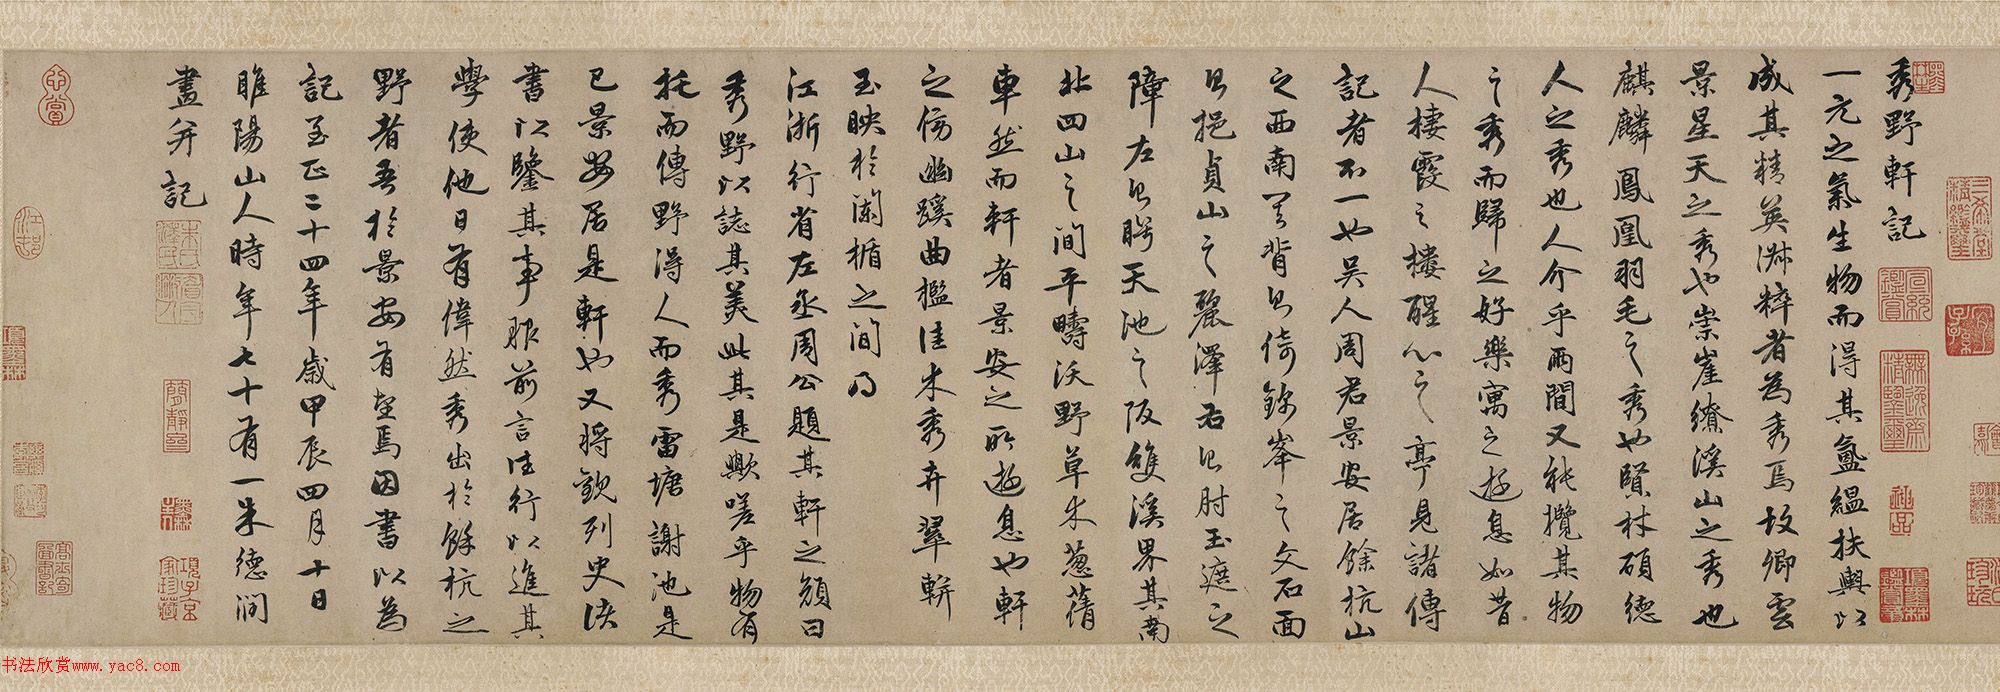 秀野軒記
一元之氣生物而得其氤氳扶輿以
成其精英淋粹者為秀焉故卿雲
景星天之秀也崇崖繚溪山之秀也
麒麟鳳凰羽毛之秀也賢材碩德
人之秀也人介乎兩間又能攬其物
之秀而歸之好樂寓之游息如昔
人棲霞之樓醒心之亭見諸傳
記者不一也吳人周君景安居餘杭山
之西南其背則倚錦峯之文石面
則挹貞山之麗澤右則肘玉遮之
障左則盻天池之阪雙溪界其南
北四山之間平疇沃野草木蔥蒨
車然而軒者景安之所遊息也軒
之傍幽蹊曲檻佳木秀卉翠軿
玉映於闌楯之間乃
江浙行省左丞周公題其軒之顏曰
秀野以誌其美此其是歟嗟乎物有
托而傳野得人而秀雷塘謝池是
已景安居是軒也又將歌列史決
書以鑒其事服前言往行以進其
學使他日有偉然秀出於餘杭之
野者吾於景安有望焉因書以為
記至正二十四年歲甲辰四月十日
睢陽山人時年七十有一朱德潤
畫并記
书法欣赏www.yac8.com